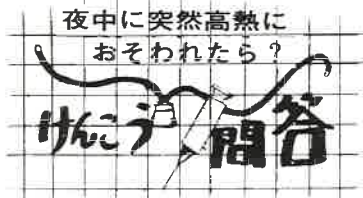 夜中に突然高熱に
おそわれたら？
けんこう問答